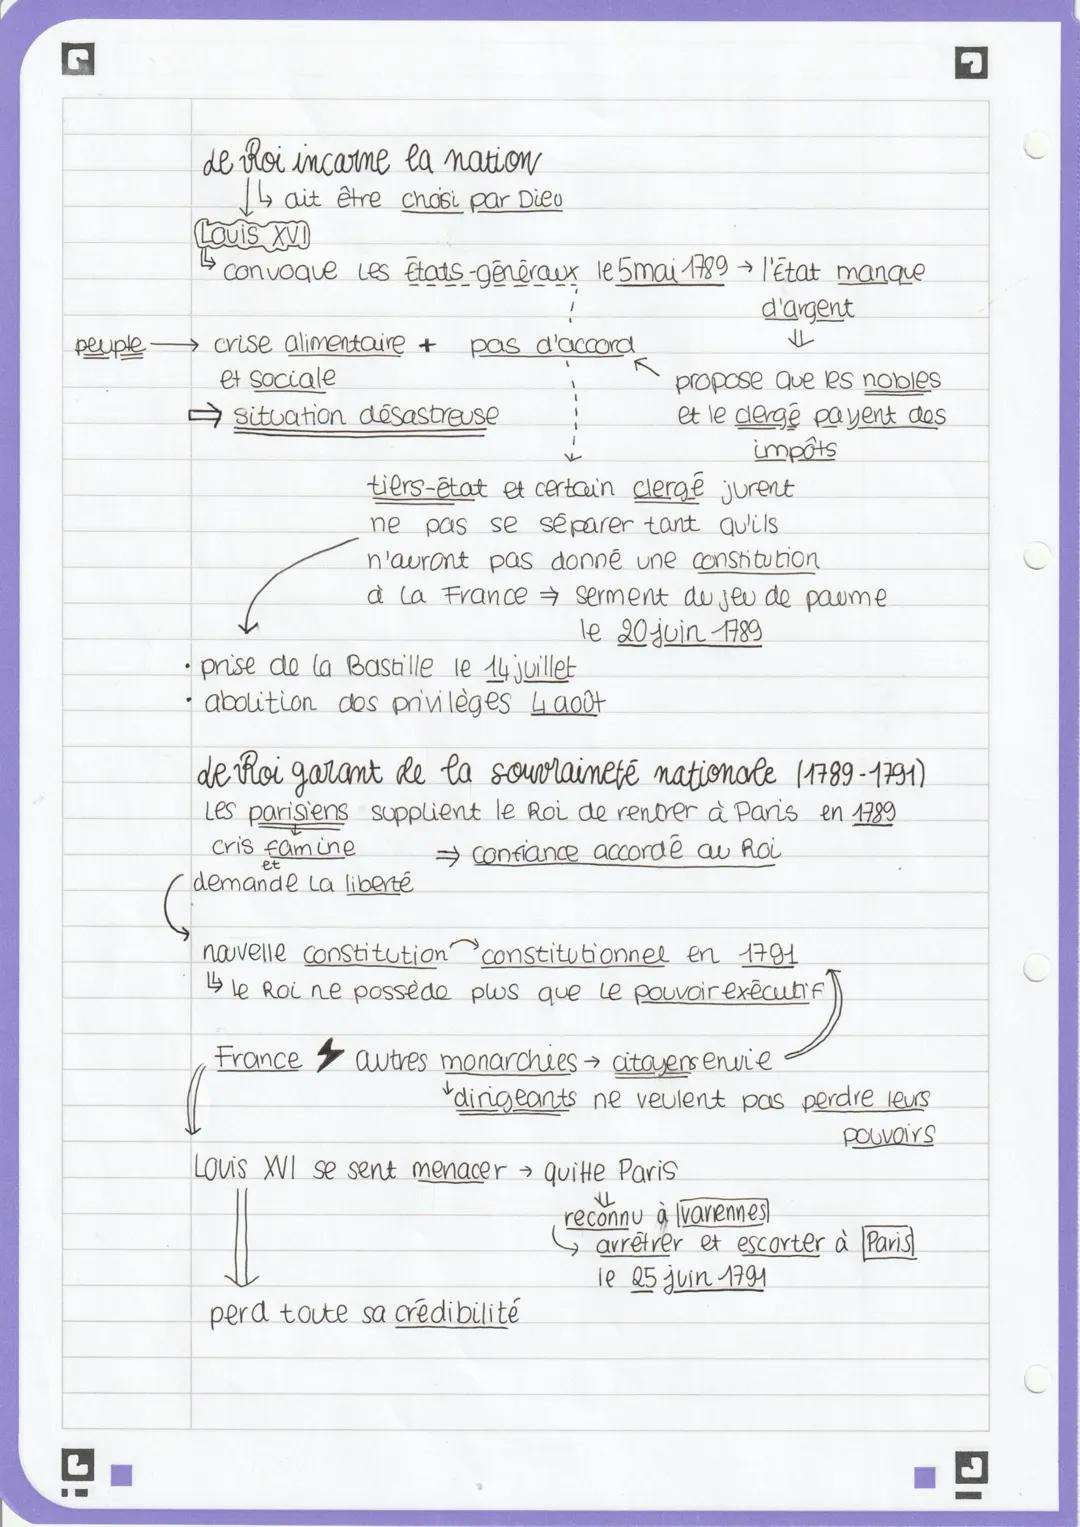 Le Roi incarne la nation
↳ ait être choisi par Dieu
Louis XVI
↳ convoque les États-généraux le 5 mai 1789 → l'État manque
d'argent
peuple → crise alimentaire + pas d'accord
et sociale
propose que les nobles
⇒ situation désastreuse
et le clergé payent des
impôts
tiers-état et certain clergé jurent
ne pas se séparer tant qu'ils
n'auront pas donné une constitution
à la France ⇒ serment du jeu de paume
le 20 juin 1789
· prise de la Bastille le 14 juillet
· abolition des privilèges 4 août
Le Roi garant de la souvraineté nationale (1789-1791)
Les parisiens supplient le Roi de rentrer à Paris en 1789
cris famine ⇒ confiance accordé au Roi
et
demande la liberté
nouvelle constitution → constitutionnel en 1791
↳ le Roi ne possède plus que le pouvoir exécutif
France ⚡ autres monarchies → citoyens envie
↓ dirigeants ne veulent pas perdre leurs
pouvoirs
Louis XVI se sent menacer → quitte Paris
reconnu à varennes
↳ arrêtrer et escorter à Paris
le 25 juin 1791
perd toute sa crédibilité